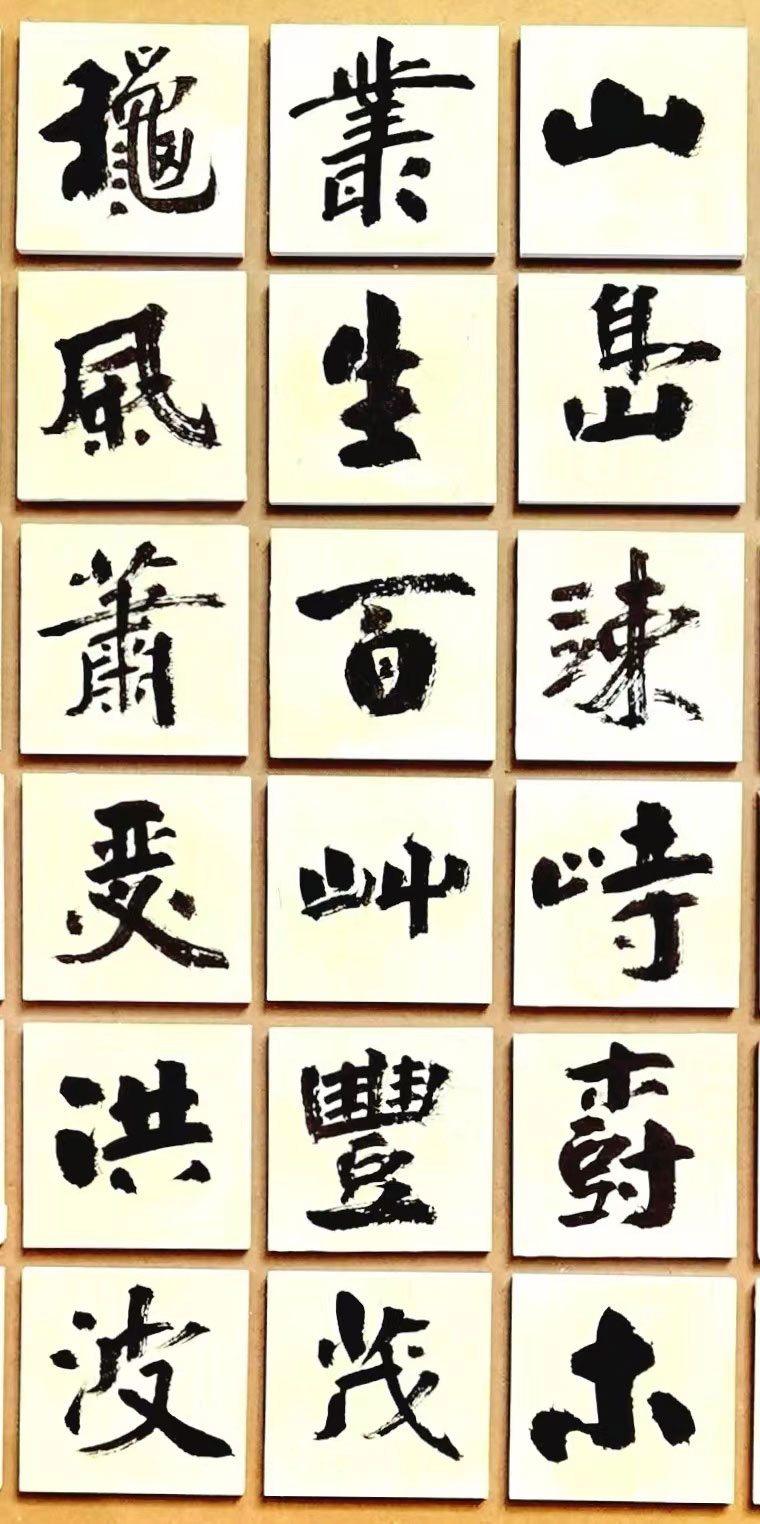 山島竦峙樹木
叢生百艸豐茂
龝風蕭瑟洪波